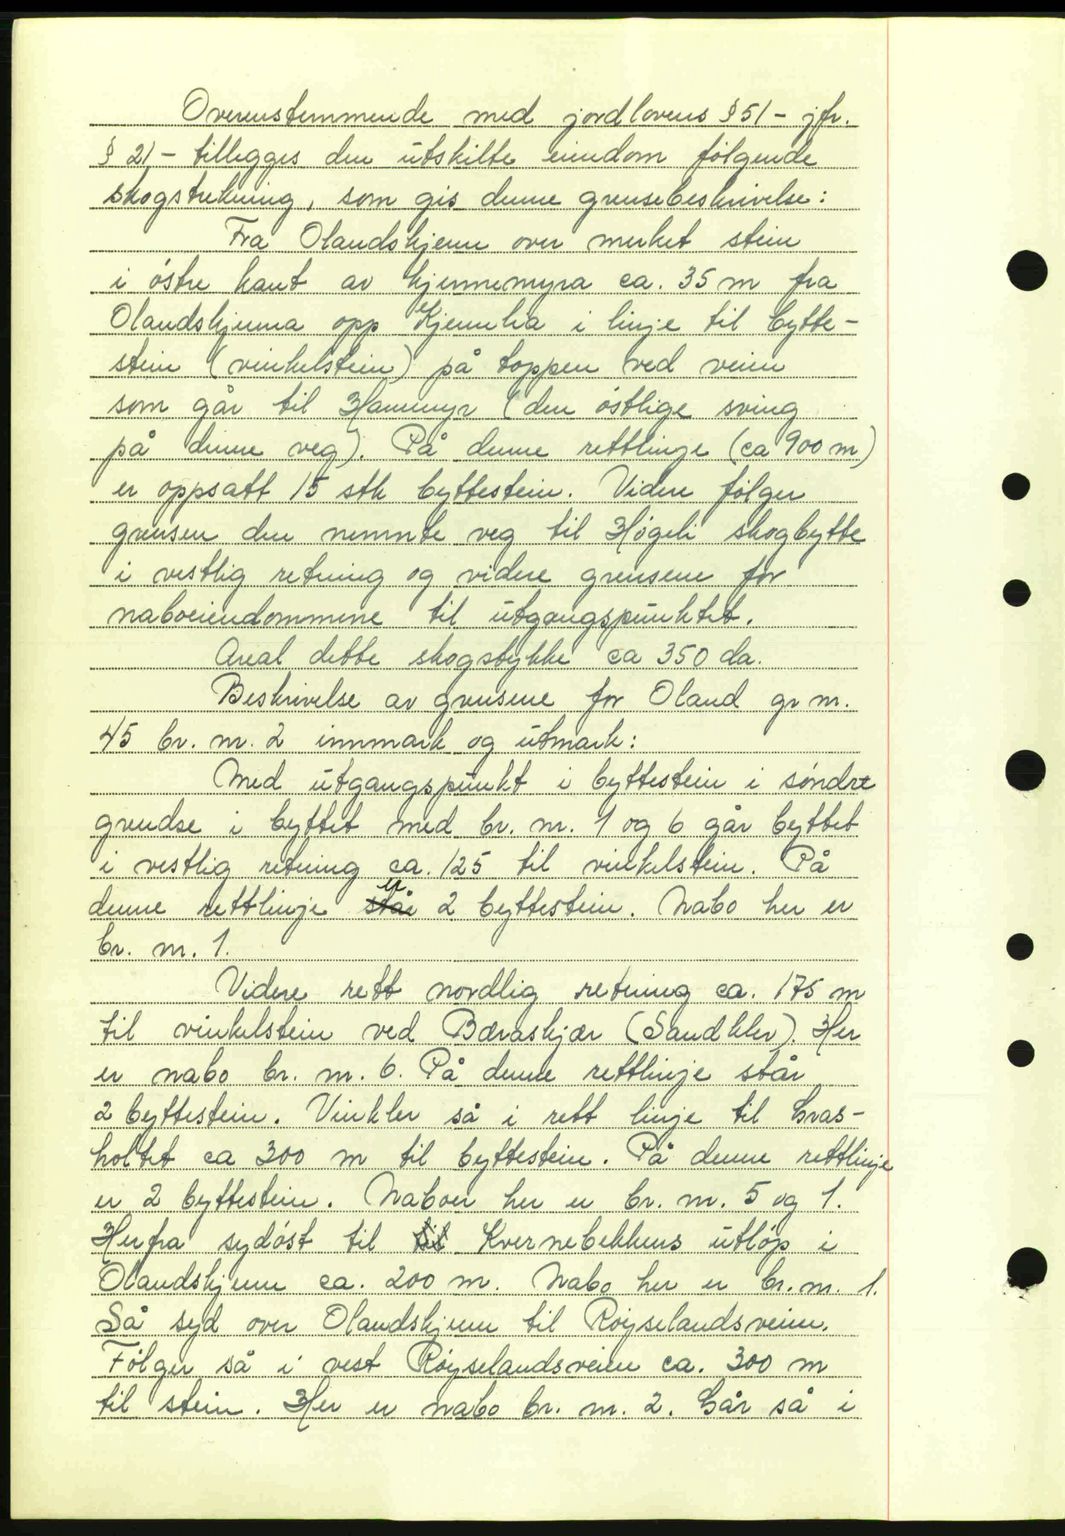 Overenstemmende med jordlovens § 51 - jfr.
§ 21 - tillegges den utskilte eiendom følgende
skogstrekning, som gis denne grensebeskrivelse:
Fra Olandskjenn over merket stein
i østre kant av Kjennemyra ca. 35 m fra
Olandskjenna opp Kjennlia i linje til bytte-
stein (vinkelstein) på toppen ved veien
som går til Hammyr (den østlige sving
på denne veg). På denne rettlinje (ca 900 m)
er oppsatt 15 stk byttestein. Videre følger
grensen den nemnte veg til Høgeli skogbytte
i vestlig retning og videre grensene for
naboeiendommene til utgangspunktet.
Areal dette skogstykke ca 350 da.
Beskrivelse av grensene for Oland gr nr.
45 br. nr. 2 innmark og utmark:
Med utgangspunkt i byttestein i søndre
grendse i byttet med br. nr. 1 og 6 går byttet
i vestlig retning ca. 125 til vinkelstein. På
denne rettlinje står er 2 byttestein. Nabo her er
br. nr. 1.
Videre rett nordlig retning ca. 175 m
til vinkelstein ved Bæraskjær (Sandklev). Her
er nabo br. nr. 6. På denne rettlinje står
2 byttestein. Vinkler så i rett linje til Gras-
holtet ca 300 m til byttestein. På denne rettlinje
er 2 byttestein. Naboer her er br. nr. 5 og 1.
Herfra sydøst til til Kvernebekkens utløp i
Olandskjenn ca. 200 m. Nabo her er br. nr. 1.
Så syd over Olandskjenn til Røyselandsveien.
Følger så i vest Røyselandsveien ca. 300 m
til stein. Her er nabo br. nr. 2. Går så i